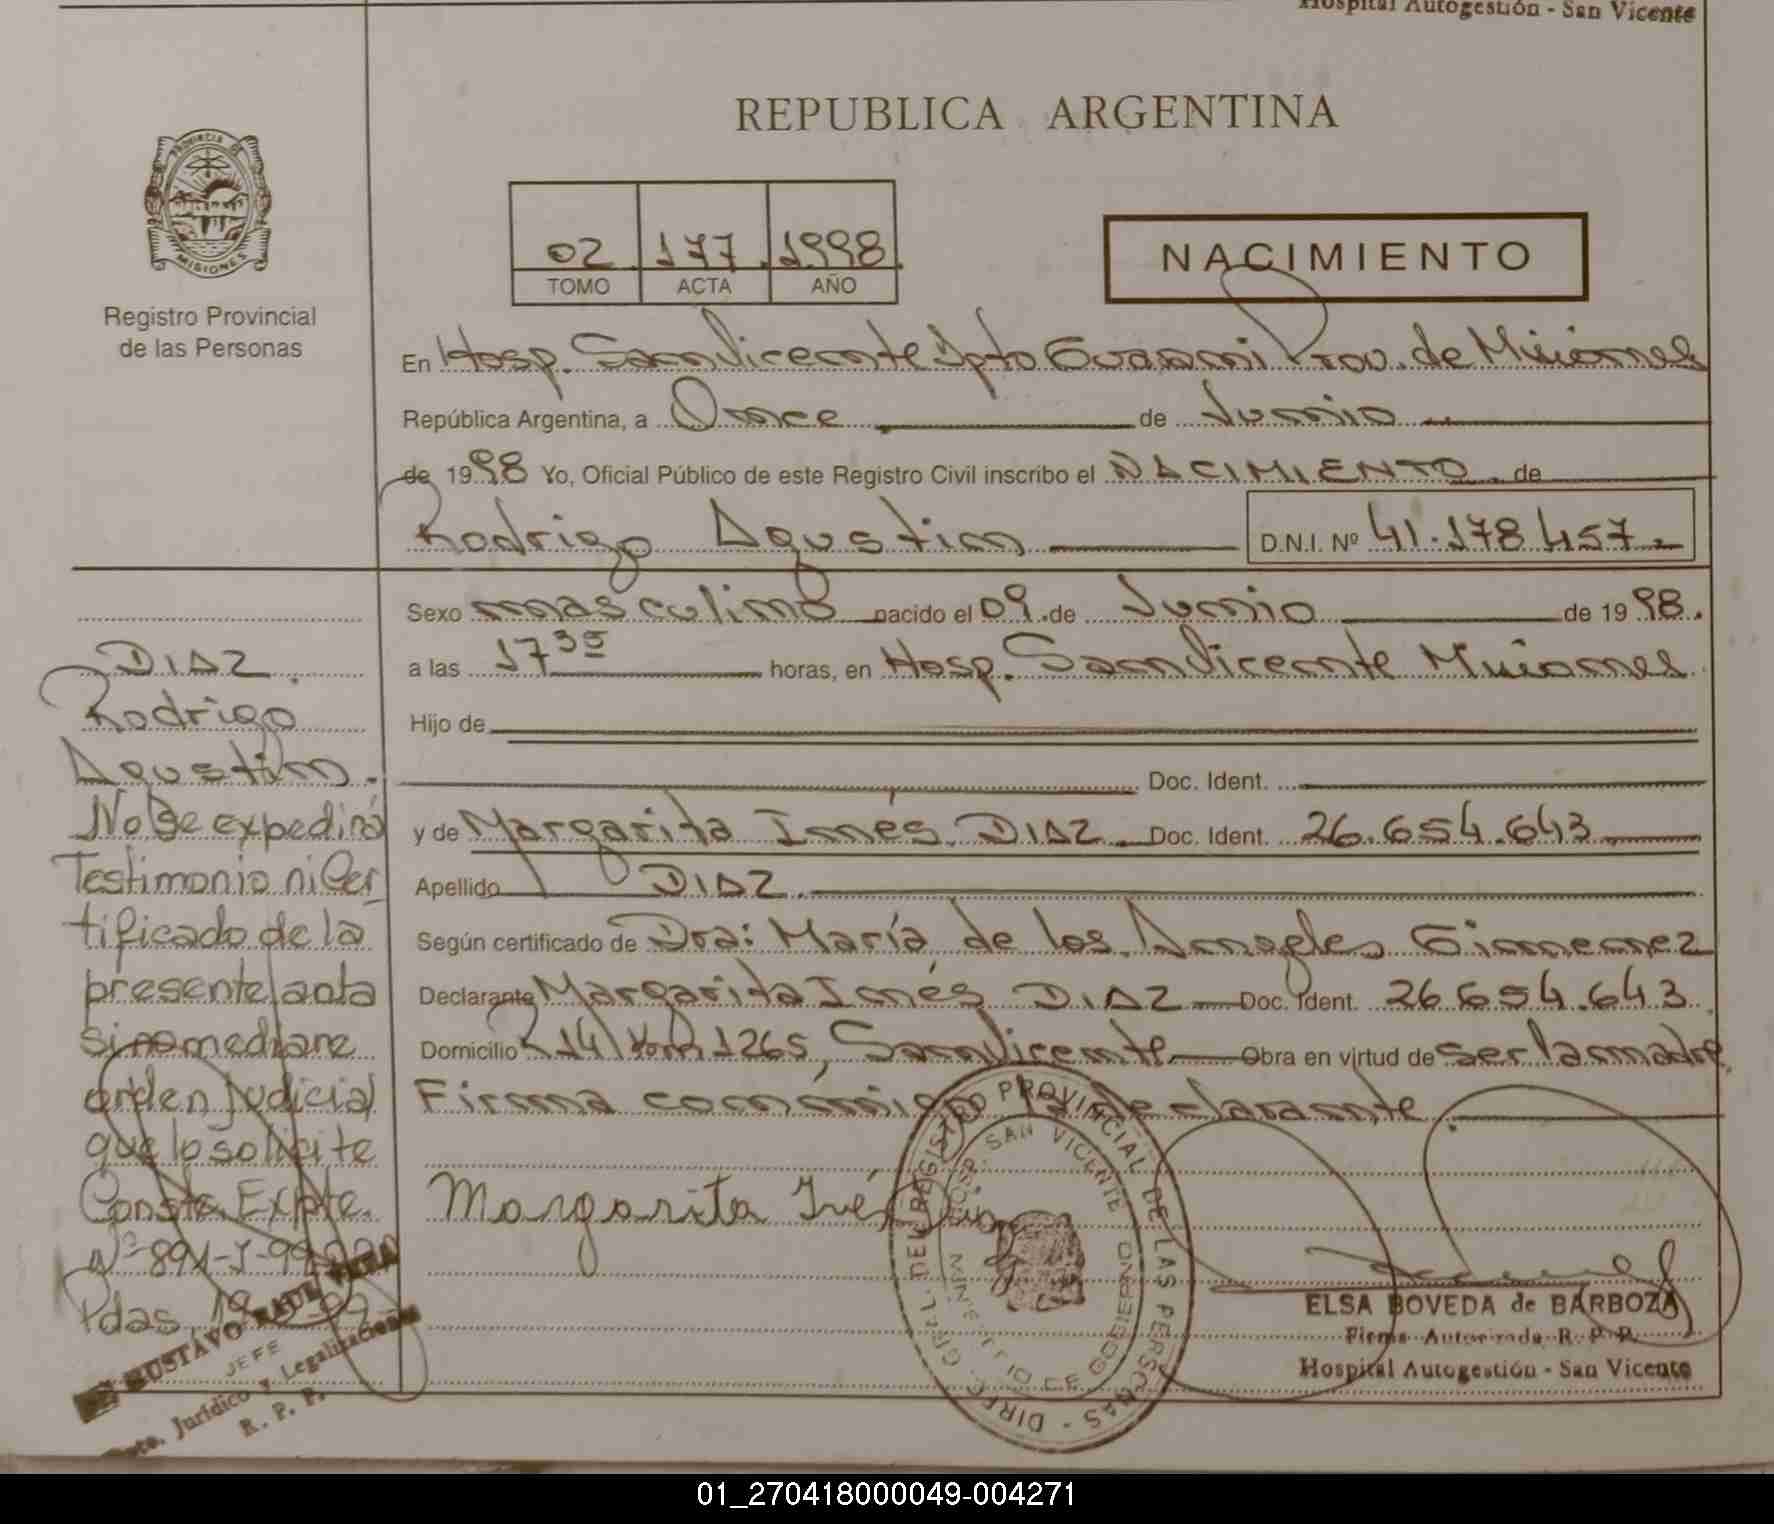 Hospital Autogestión - San Vicente
REPUBLICA ARGENTINA
PROVINCIA DE
MISIONES
Registro Provincial
de las Personas
02 177 1998
TOMO ACTA AÑO
NACIMIENTO
En Hosp. San Vicente Dpto Guarani Prov. de Misiones
República Argentina, a Once de Junio
de 1998 Yo, Oficial Público de este Registro Civil inscribo el NACIMIENTO de
Rodrigo Agustin D.N.I. Nº 41.178.457
Sexo masculino nacido el 09 de Junio de 1998.
a las 17 35 horas, en Hosp. San Vicente Misiones
Hijo de
Doc. Ident.
y de Margarita Inés DIAZ Doc. Ident. 26.654.643
Apellido DIAZ.
Según certificado de Dra: María de los Angeles Gimenez
Declarante Margarita Inés DIAZ Doc. Ident. 26.654.643
Domicilio R 14 Km 1265, San Vicente Obra en virtud de ser la madre
Firma conmigo la declarante
Margarita Inés Diaz
DIAZ
Rodrigo
Agustin.
No se expedirá
Testimonio ni Cer
tificado de la
presente acta
si no mediare
orden judicial
que lo solicite
Conste. Expte.
Nº 891-J-99
Pdas, 19
GUSTAVO
JEFE
Dpto. Jurídico y Legalizaciones
R. P. P.
DIREC. GRAL. DEL REGISTRO PROVINCIAL DE LAS PERSONAS
HOSP. SAN VICENTE
DE GOBIERNO
ELSA BOVEDA de BARBOZA
Firma Autorizada R. P. P.
Hospital Autogestión - San Vicente
01_270418000049-004271